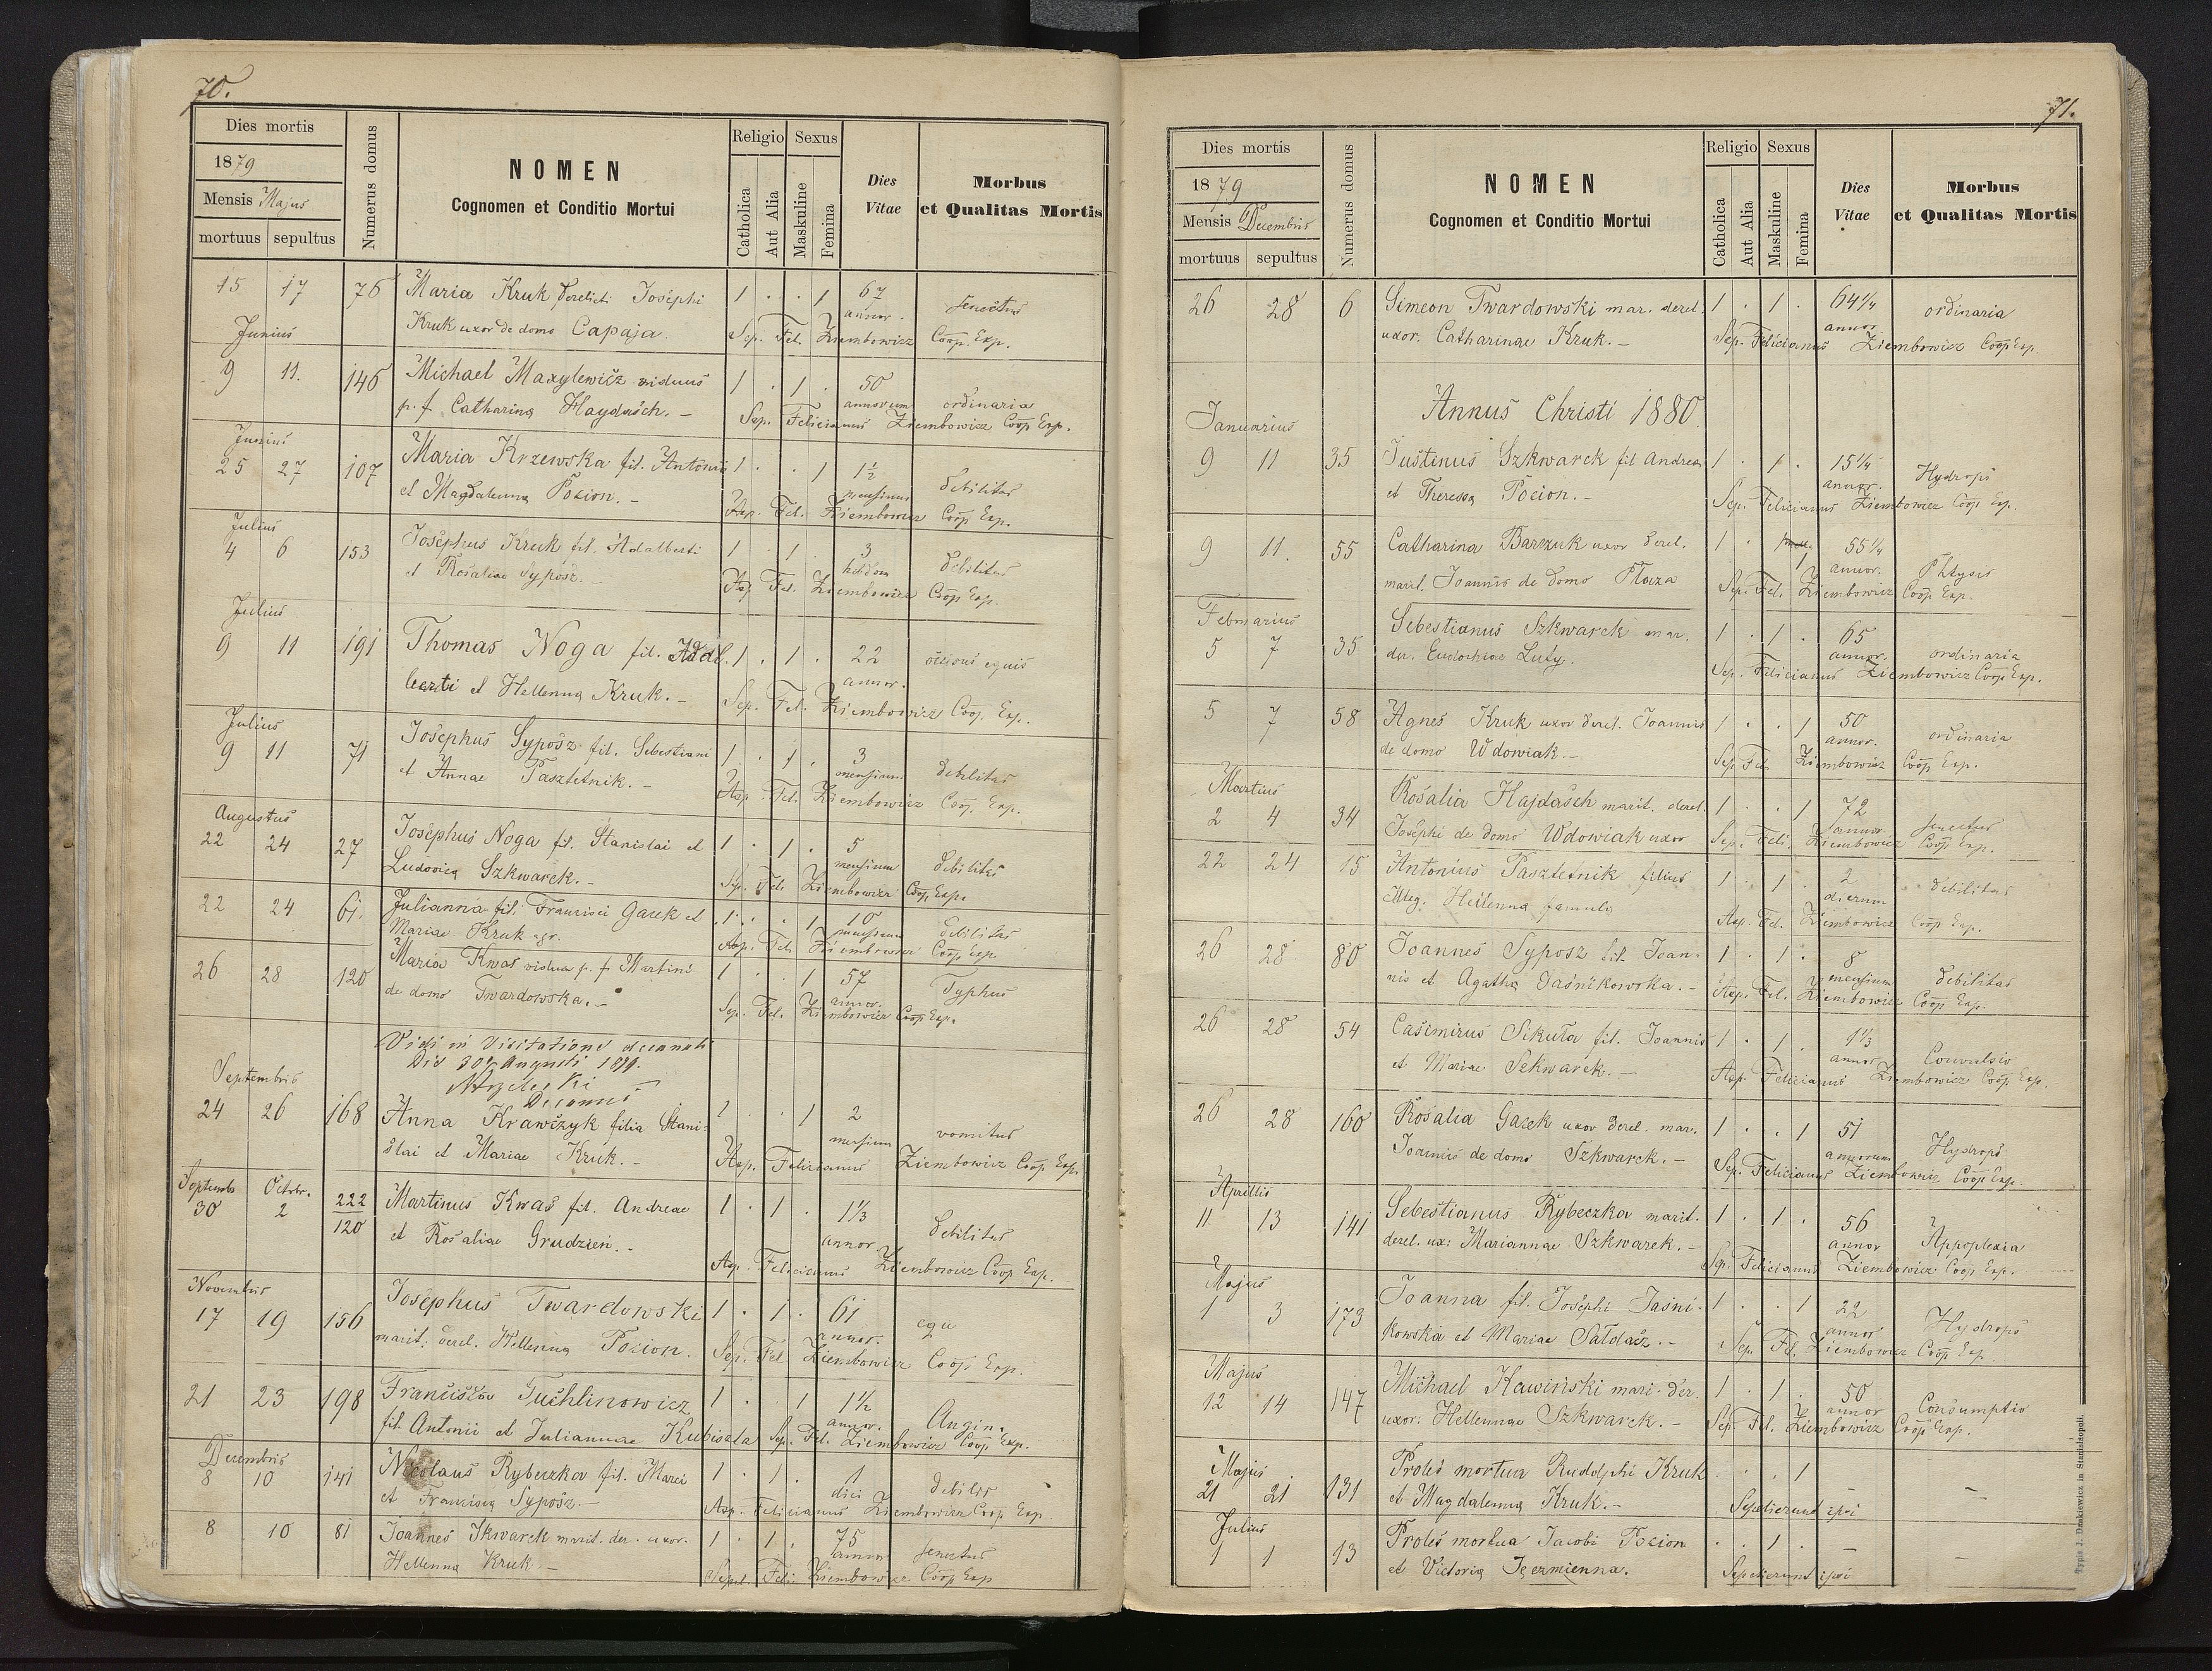 70.
Dies mortis
1879
Mensis Majus
mortuus sepultus
Numerus domus
NOMEN
Cognomen et Conditio Mortui
Religio Sexus
Catholica
Aut Alia
Maskuline
Femina
Dies
Vitae
Morbus
et Qualitas Mortis
15 17 76 Maria Kruk derelicti Josephi 1 . . 1 67 senectus
annor.
Kruk uxor de domo Capaja. Sep. Fel. Ziembowicz Coop. Exp.
Junius
9 11. 146 Michael Maxylewicz viduus 1 . 1 . 50 ordinaria
annorum
p. f. Catharina Haydasch. – Sep. Felicianus Ziembowicz Coop Exp.
Junius
25 27 107 Maria Krzewska fil. Antonii 1 . . 1 1½ debilitas
mensium
et Magdalenna Pocion. – Asp. Fel. Ziembowicz Coop Exp.
Julius
4 6 153 Josephus Kruk fil. Adalberti 1 . 1 . 3 debilitas
hebdom
et Rosaliae Syposz. – Asp Fel. Ziembowicz Coop Exp.
Julius
9 11 191 Thomas Noga fil. Adal. 1 . 1 . 22 occisus equis
annor.
berti et Hellenna Kruk. – Sep. Fel. Ziembowicz Coop. Exp.
Julius
9 11 71 Josephus Syposz fil. Sebestiani 1 . 1 . 3 debilitas
mensium
et Annae Pasztetnik. – Asp. Fel. Ziembowicz Coop Exp.
Augustus
22 24 27 Josephus Noga fil. Stanislai et 1 . 1 . 5 debilitas
mensium
Ludovica Szkwarek. – Sep. Fel. Ziembowicz Coop Exp.
22 24 61. Julianna fil. Francisci Garek et 1 . . 1 10 debilitas
mensium
Mariae Kruk agr. Asp. Fel. Ziembowicz Coop Exp
26 28 120 Maria Kwas vidua p. f. Martini 1 . . 1 57 Typhus
annor.
de domo Twardowska. – Sep. Fel. Ziembowicz Coop Exp.
Vidi in Visitatione decannali
Die 30 Augusti 1879.
Decannus
Septembris
24 26 168 Anna Krawczyk filia Stani- 1 . . 1 2 vomitus
mensium
slai et Mariae Kruk. – Asp. Felicianus Ziembowicz Coop Exp.
Septembr Octobr.
30 2 222 120 Martinus Kwas fil. Andreae 1 . 1 . 1⅓ debilitas
annor
et Rosaliae Grudzien. – Asp. Felicianus Ziembowicz Coop Exp.
Novembris
17 19 156 Josephus Twardowski 1 . 1 . 61
annor.
marit. derel. Hellenna Pocion. Sep. Fel. Ziembowicz Coop Exp.
21 23 198 Franciszka Tuchlinowicz 1 . . 1 1½ Angina
annor.
fil. Antonii et Juliannae Kubiszta Sep. Fel. Ziembowicz Coop Exp.
Decembris
8 10 141 Nicolaus Rybeczka fil. Marci 1 . 1 . 1 debilis
diei
et Francisca Syposz. – Asp. Felicianus Ziembowicz Coop Exp.
8 10 81 Joannes Skwarek marit. der. uxor. 1 . 1 . 75 senectus
annor
Hellenna Kruk – Sepel. Feli. Ziembowicz Coop Exp
71.
Dies mortis
1879
Mensis Decembris
mortuus sepultus
Numerus domus
NOMEN
Cognomen et Conditio Mortui
Religio Sexus
Catholica
Aut Alia
Maskuline
Femina
Dies
Vitae
Morbus
et Qualitas Mortis
26 28 6 Simeon Twardowski mar. derel. 1 . 1 . 64¼ ordinaria
annor.
uxor. Catharinae Kruk. – Sep. Felicianus Ziembowicz Coop Exp.
Annus Christi 1880.
Januarius
9 11 35 Justinus Szkwarek fil Andreae 1 . 1 . 15¼ Hydrops
annor.
et Theresa Pocion. – Sep. Felicianus Ziembowicz Coop Exp.
9 11. 55 Catharina Barzuk uxor derel. 1 . 1 55¼ Phtysis
annor.
marit. Joannis de domo Ploza Sep. Fel. Ziembowicz Coop Exp.
Februarius
5 7 35 Sebestianus Szkwarek mar. 1 . 1 . 65 ordinaria
annor.
der. Eudochiae Luty. Sep. Felicianus Ziembowicz Coop Exp.
5 7 58 Agnes Kruk uxor derel. Joannis 1 . . 1 50 ordinaria
annor.
de domo Wdowiak – Sep Fel. Ziembowicz Coop Exp.
Martius
2 4 34 Rosalia Hajdasch marit. derel. 1 . . 1 72 senectus
annor
Josephi de domo Wdowiak uxor Sep. Feli. Ziembowicz Coop Exp.
22 24 15 Antonius Pasztetnik filius 1 . 1 . 2 debilitas
dierum
illeg. Hellenna famula Asp. Fel. Ziembowicz Coop Exp.
26 28 80 Joannes Syposz fil. Joan- 1 . 1 . 8 debilitas
mensium
nis et Agatha Jasnikowska. – Asp. Fel. Ziembowicz Coop Exp.
26 28 54 Casimirus Sikuta fil. Joannis 1 . 1 . 1⅓ Convulsio
annor
et Mariae Szkwarek. – Asp. Felicianus Ziembowicz Coop Exp.
26 28 160 Rosalia Garek uxor derel. mar. 1 . . 1 51 Hydrops
annorum
Joannis de domo Szkwarek. – Sep. Felicianus Ziembowicz Coop Exp.
Aprillis
11 13 141 Sebestianus Rybeczka marit. 1 . 1 . 56 Appoplexia
annor
derel. ux: Mariannae Szkwarek. – Sep. Felicianus Ziembowicz Coop Exp.
Majus
1 3 173 Joanna fil. Josephi Jasni- 1 . . 1 22 Hydrops
annor
kowska et Mariae Saldasz. – Sep. Fel. Ziembowicz Coop Exp
Majus
12 14 147 Michael Kawinski mari. der. 1 . 1 . 50 Consumptio
annor
uxor: Hellennae Szkwarek. – Sep. Fel. Ziembowicz Coop Exp.
Majus
21 21 131 Proles mortua Rudolphi Kruk . . . 1 – –
et Magdalenna Kruk. – Sepelierunt ipsi
Julius
1 1 93 Proles mortua Jacobi Pocion . . 1 . – –
et Victoria Jezmienna. Sepelierunt ipsi
Typis J. Dankiewicz in Stanislaopoli.